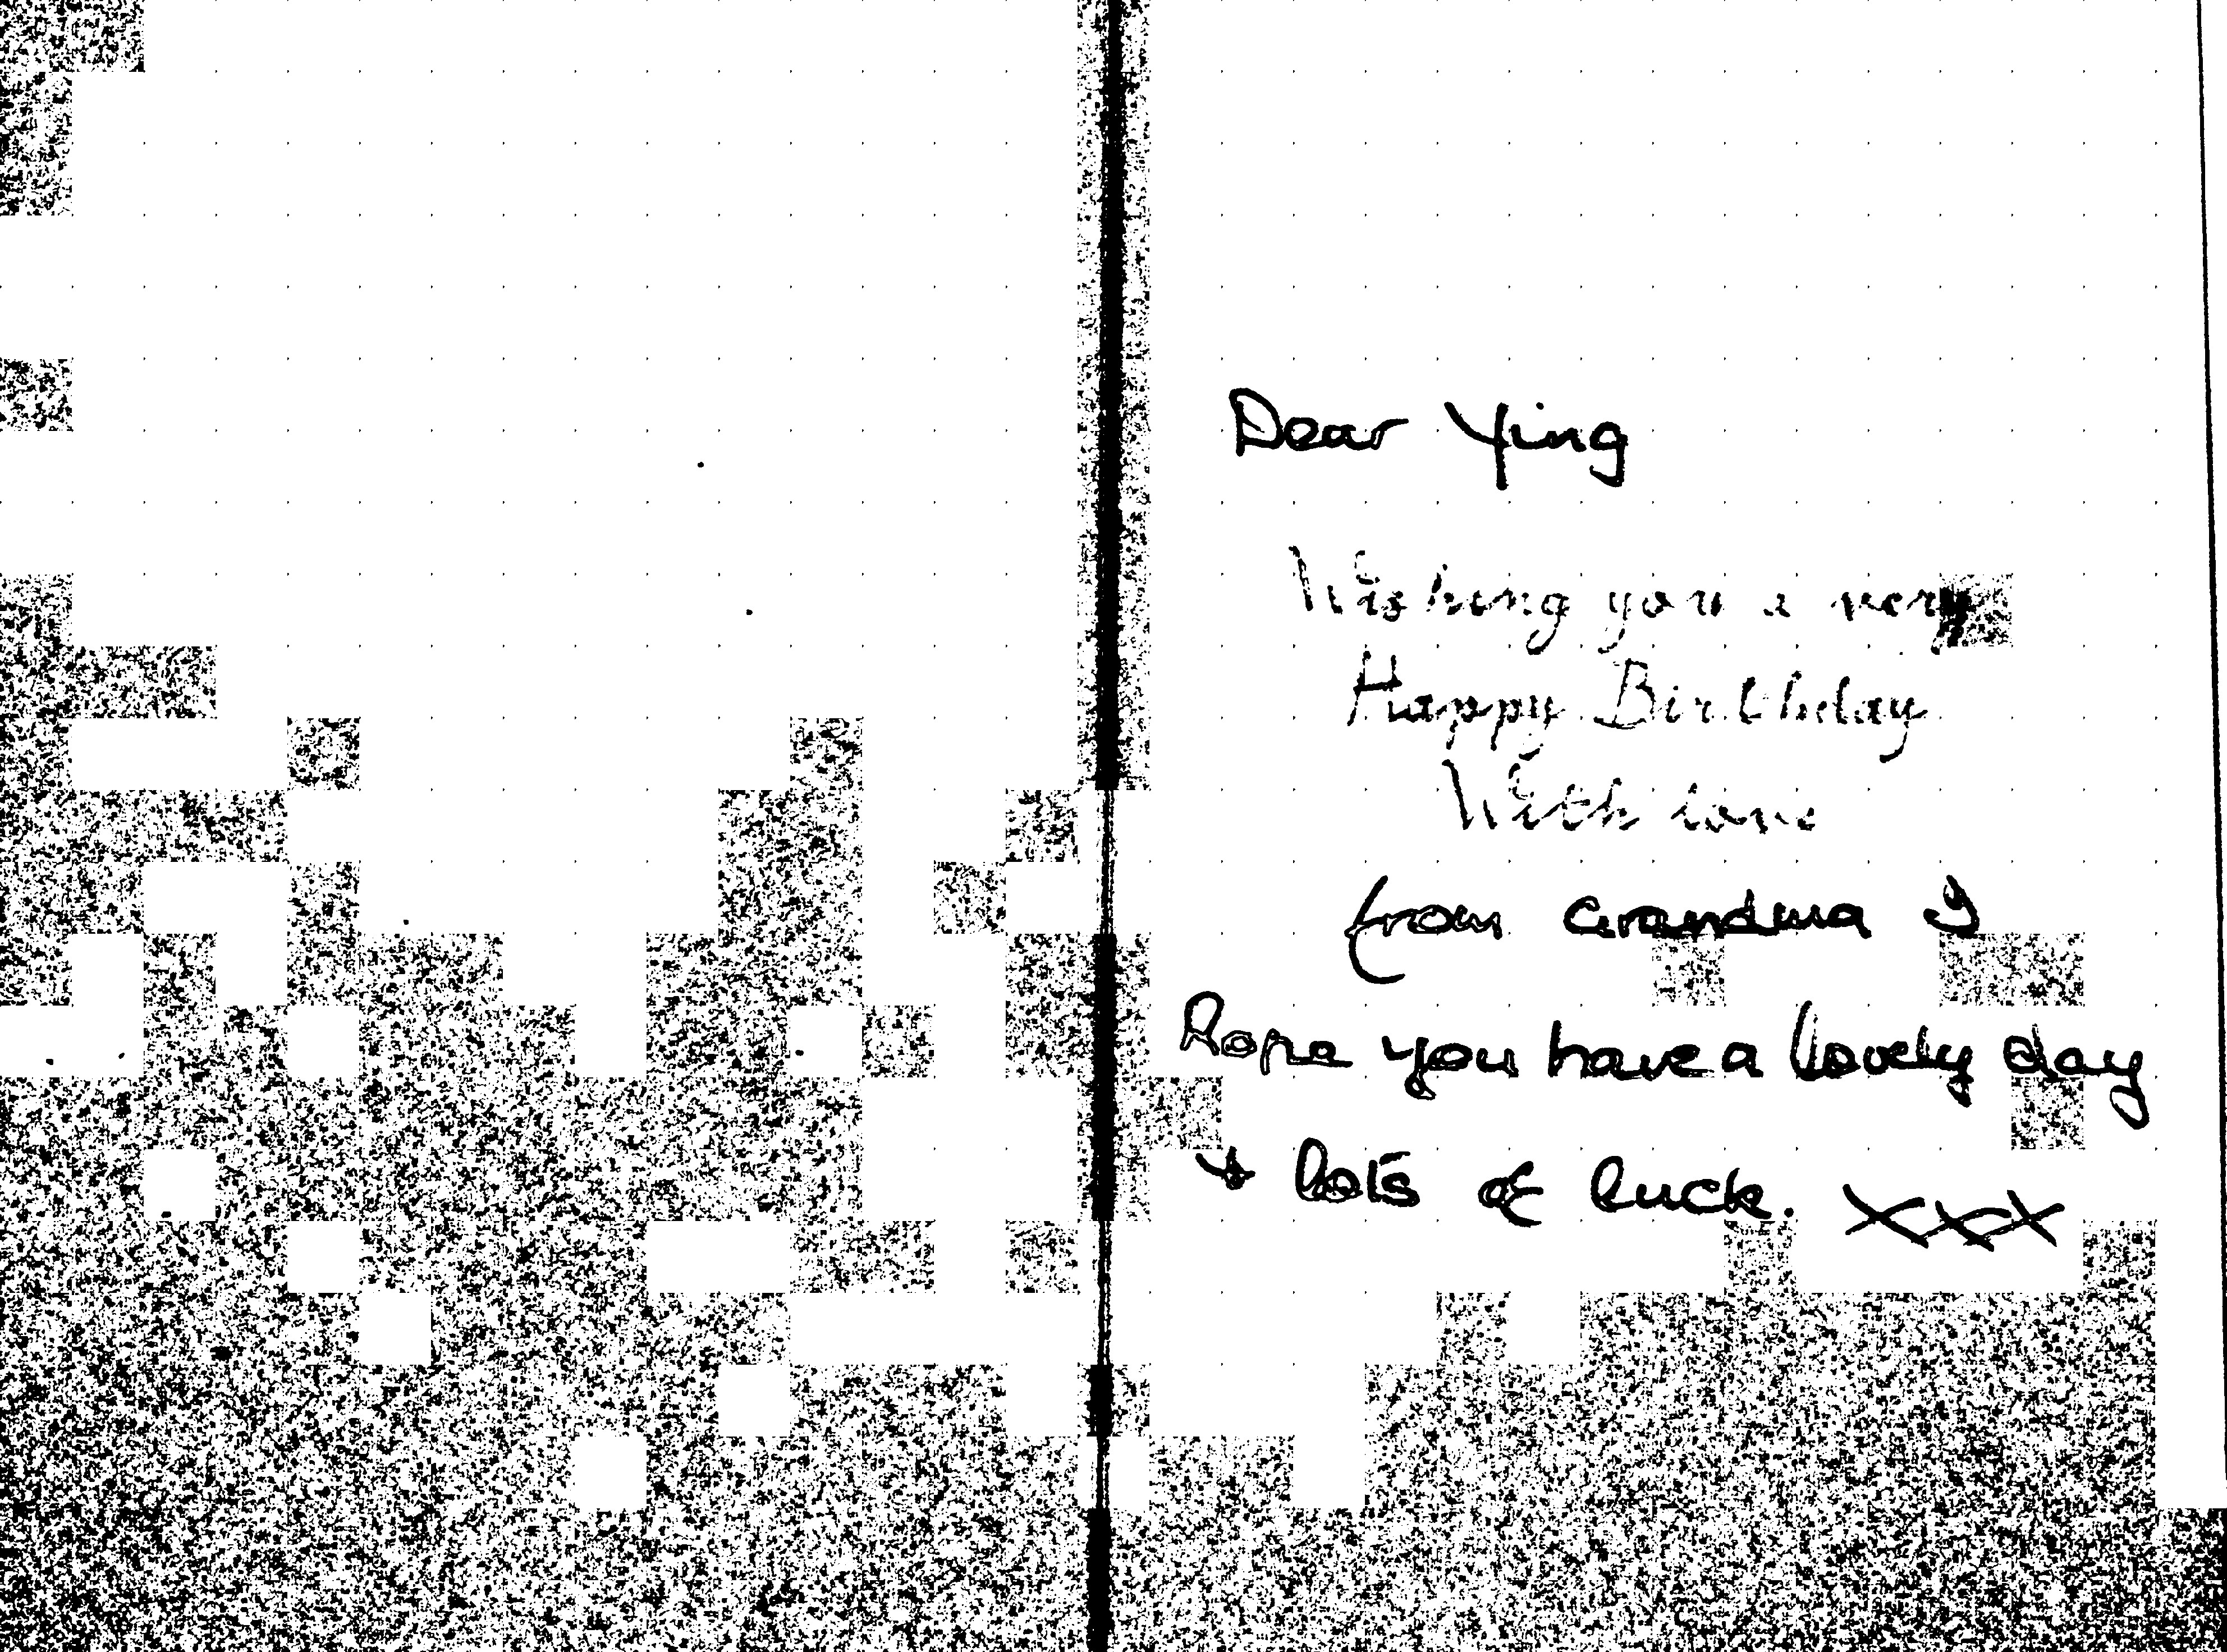 Dear Ying
Wishing you a very
Happy Birthday
With love
from Grandma Y
Hope you have a lovely day
+ lots of luck. xxx